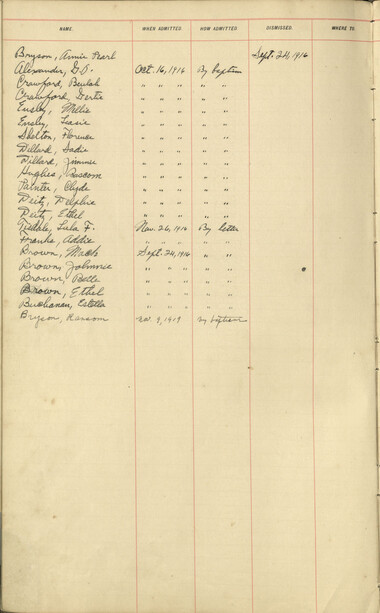 NAME. WHEN ADMITTED. HOW ADMITTED. DISMISSED. WHERE TO.
Bryson, Annie Pearl Sept. 24, 1916
Alexander, G.D. Oct. 16, 1916 By baptism
Crawford, Beulah " " " " "
Crawford, Gertie " " " " "
Ensley, Mellie " " " " "
Ensley, " " " " "
Shelton, Florence " " " " "
Dillard, Sadie " " " " "
Dillard, Jimmie " " " " "
Hughes, Roscom " " " " "
Painter, Clyde " " " " "
Deitz, Delphia " " " " "
Deitz, Ethel " " " " "
Lula F. Nov. 26, 1916 By letter
Franks, Addie " " " " "
Brown, Mack Sept. 24, 1916 " "
Brown, Johnnie " " " " "
Brown, Belle " " " " "
Brown, Ethel " " " " "
Buchanan, Estella " " " " "
Bryson, Ransom Nov. 9, 1919 By baptism